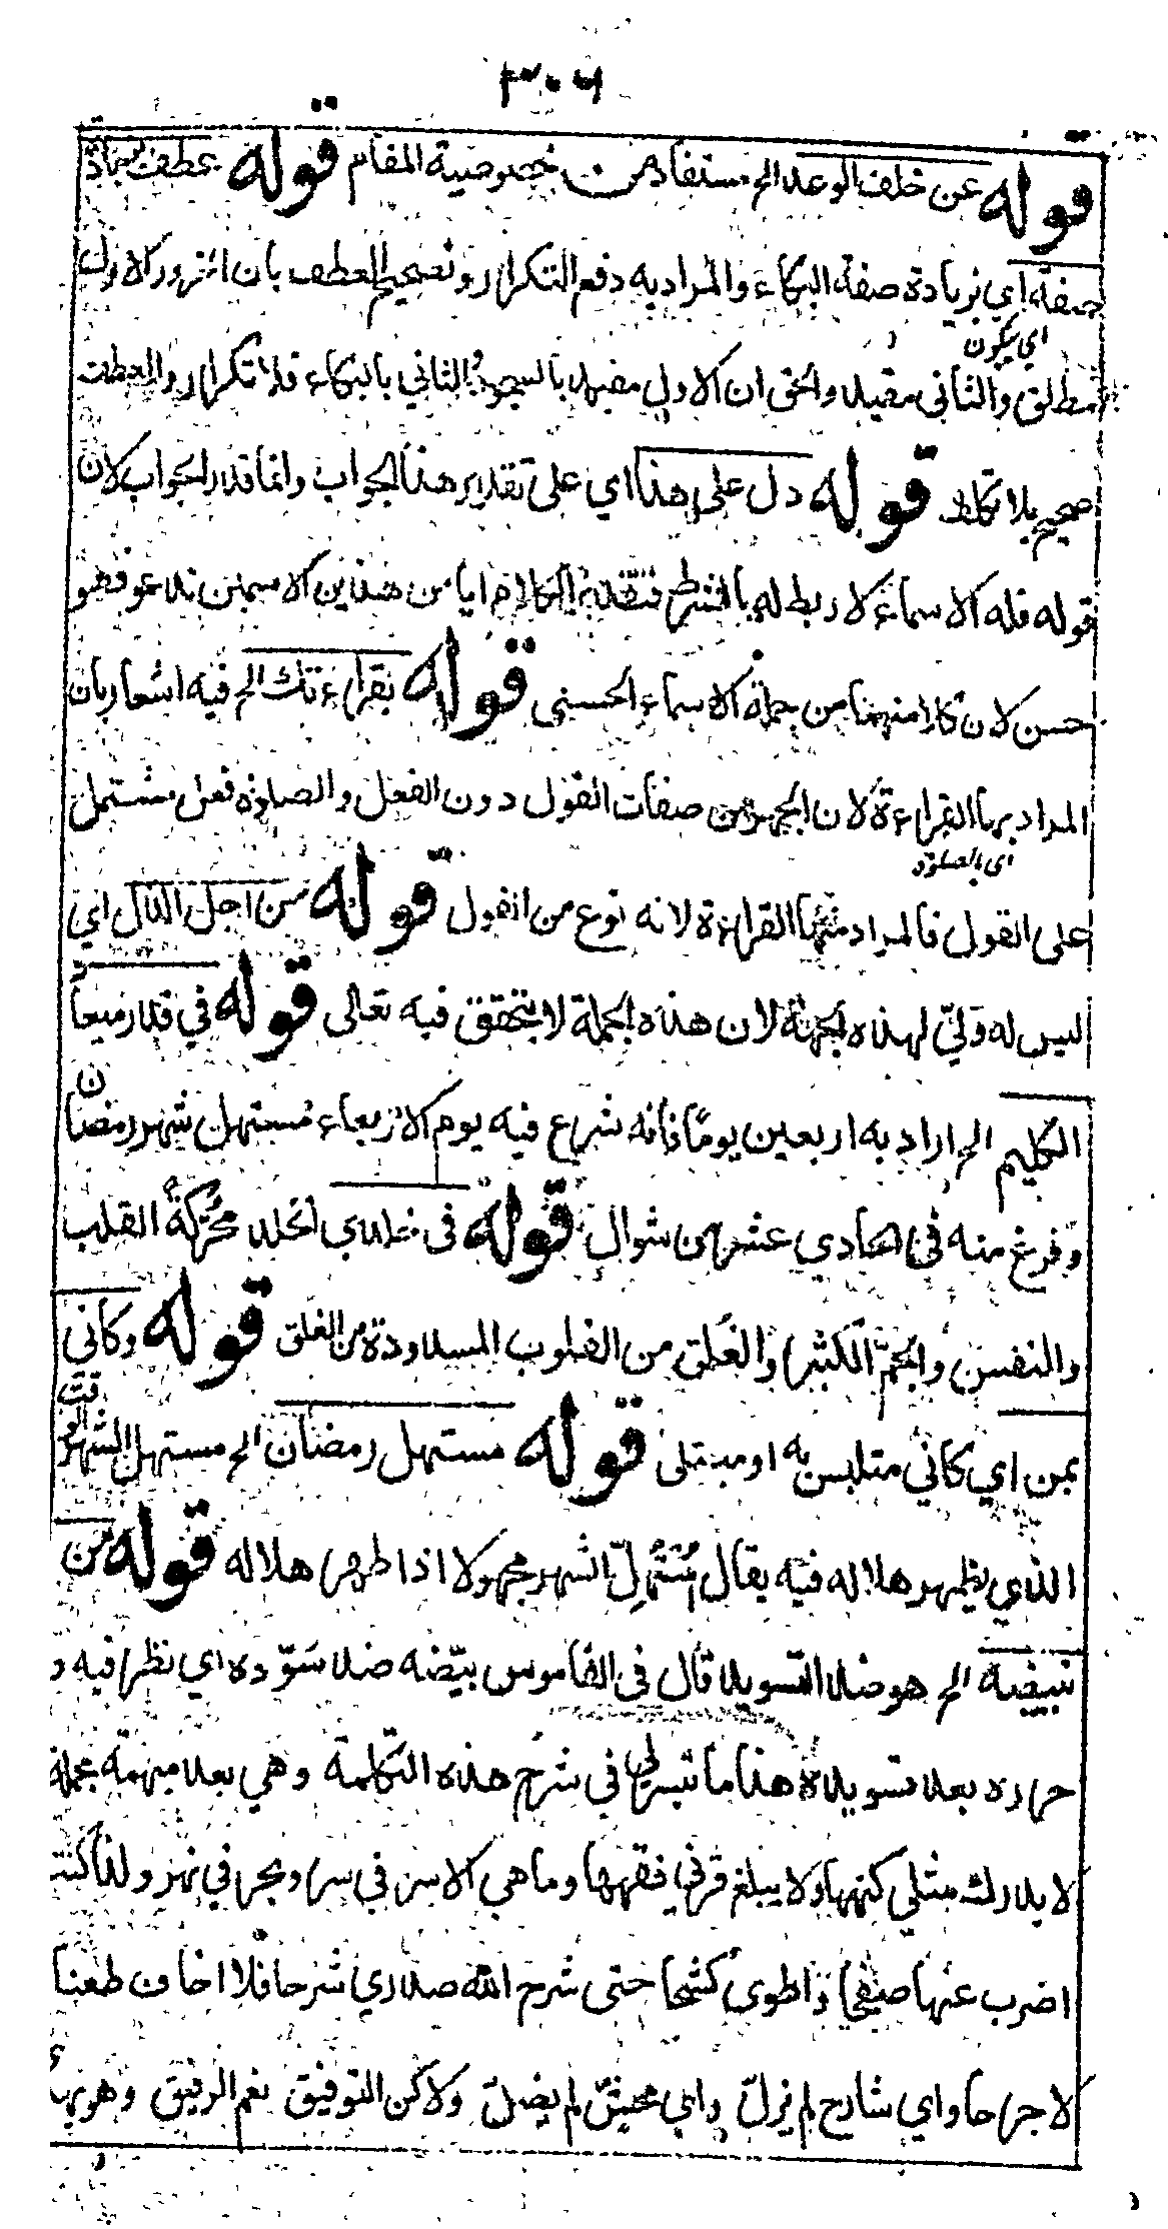 ٣٠٦
قوله عن خلف الوعد الخ مستفاد من خصوصية المقام قوله بعطف لزيادة
صفة اي بزيادة صفة البكاء والمراد به دفع التكرار وتصحيح العطف بان الخرور الاول
اي يكون
مطلق والثاني مقيد والحق ان الاول مقيد بالسجود الثاني بالبكاء فلا تكرار والعطف
صحيح بلا تكلف قوله دل على هذا اي على تقدير هذا الجواب وانما قدر الجواب لان
قوله فله الاسماء لا ربط له بالشرط فتقدير الكلام ايا من هذين الاسمين تدعو فهو
حسن لان كلا منهما من جملة الاسماء الحسنى قوله بقراءتك الخ فيه اشعار بان
المراد بها القراءة لان الجهر من صفات القول دون الفعل والصلوة فعل مشتمل
اى بالصلوة
على القول فالمراد منها القراءة لانه نوع من القول قوله من اجل الذل اي
ليس له ولي لهذه الجهة لان هذه الجملة لا يتحقق فيه تعالى قوله في قدر ميعاد
الكليم الخ اراد به اربعين يوما فانه شرع فيه يوم الاربعاء مستهل شهر رمضان
وفرغ منه فى الحادي عشر من شوال قوله فى خلدي الخلد محركة القلب
والنفس والجم الكثير والغلق من القلوب المسدودة من الغلق قوله وكانى
بمن اي كاني متلبس به او مبتلى قوله مستهل رمضان الخ مستهل الشهر الوقت
الذي يظهر هلاله فيه يقال استهل الشهر مجهولا اذا ظهر هلاله قوله من
تبييضه الخ هو ضد التسويد قال فى القاموس بيضه ضد سوده اي نظر فيه و
حرره بعد تسويده هذا ما تيسر لي فى شرح هذه التكلمة وهي بعد مبهمة مجملة
لا يدرك مثلي كنهها ولا يبلغ قرني فقهها وما هي الا سر في سر وبحر في نهر ولذا كنت
اضرب عنها صفحا واطوى كشحا حتى شرح الله صدري شرحا فلا اخاف طعنا
لا جرحا واي شارح لم يزل واي محش لم يضل ولاكن التوفيق نعم الرفيق وهو يهدى